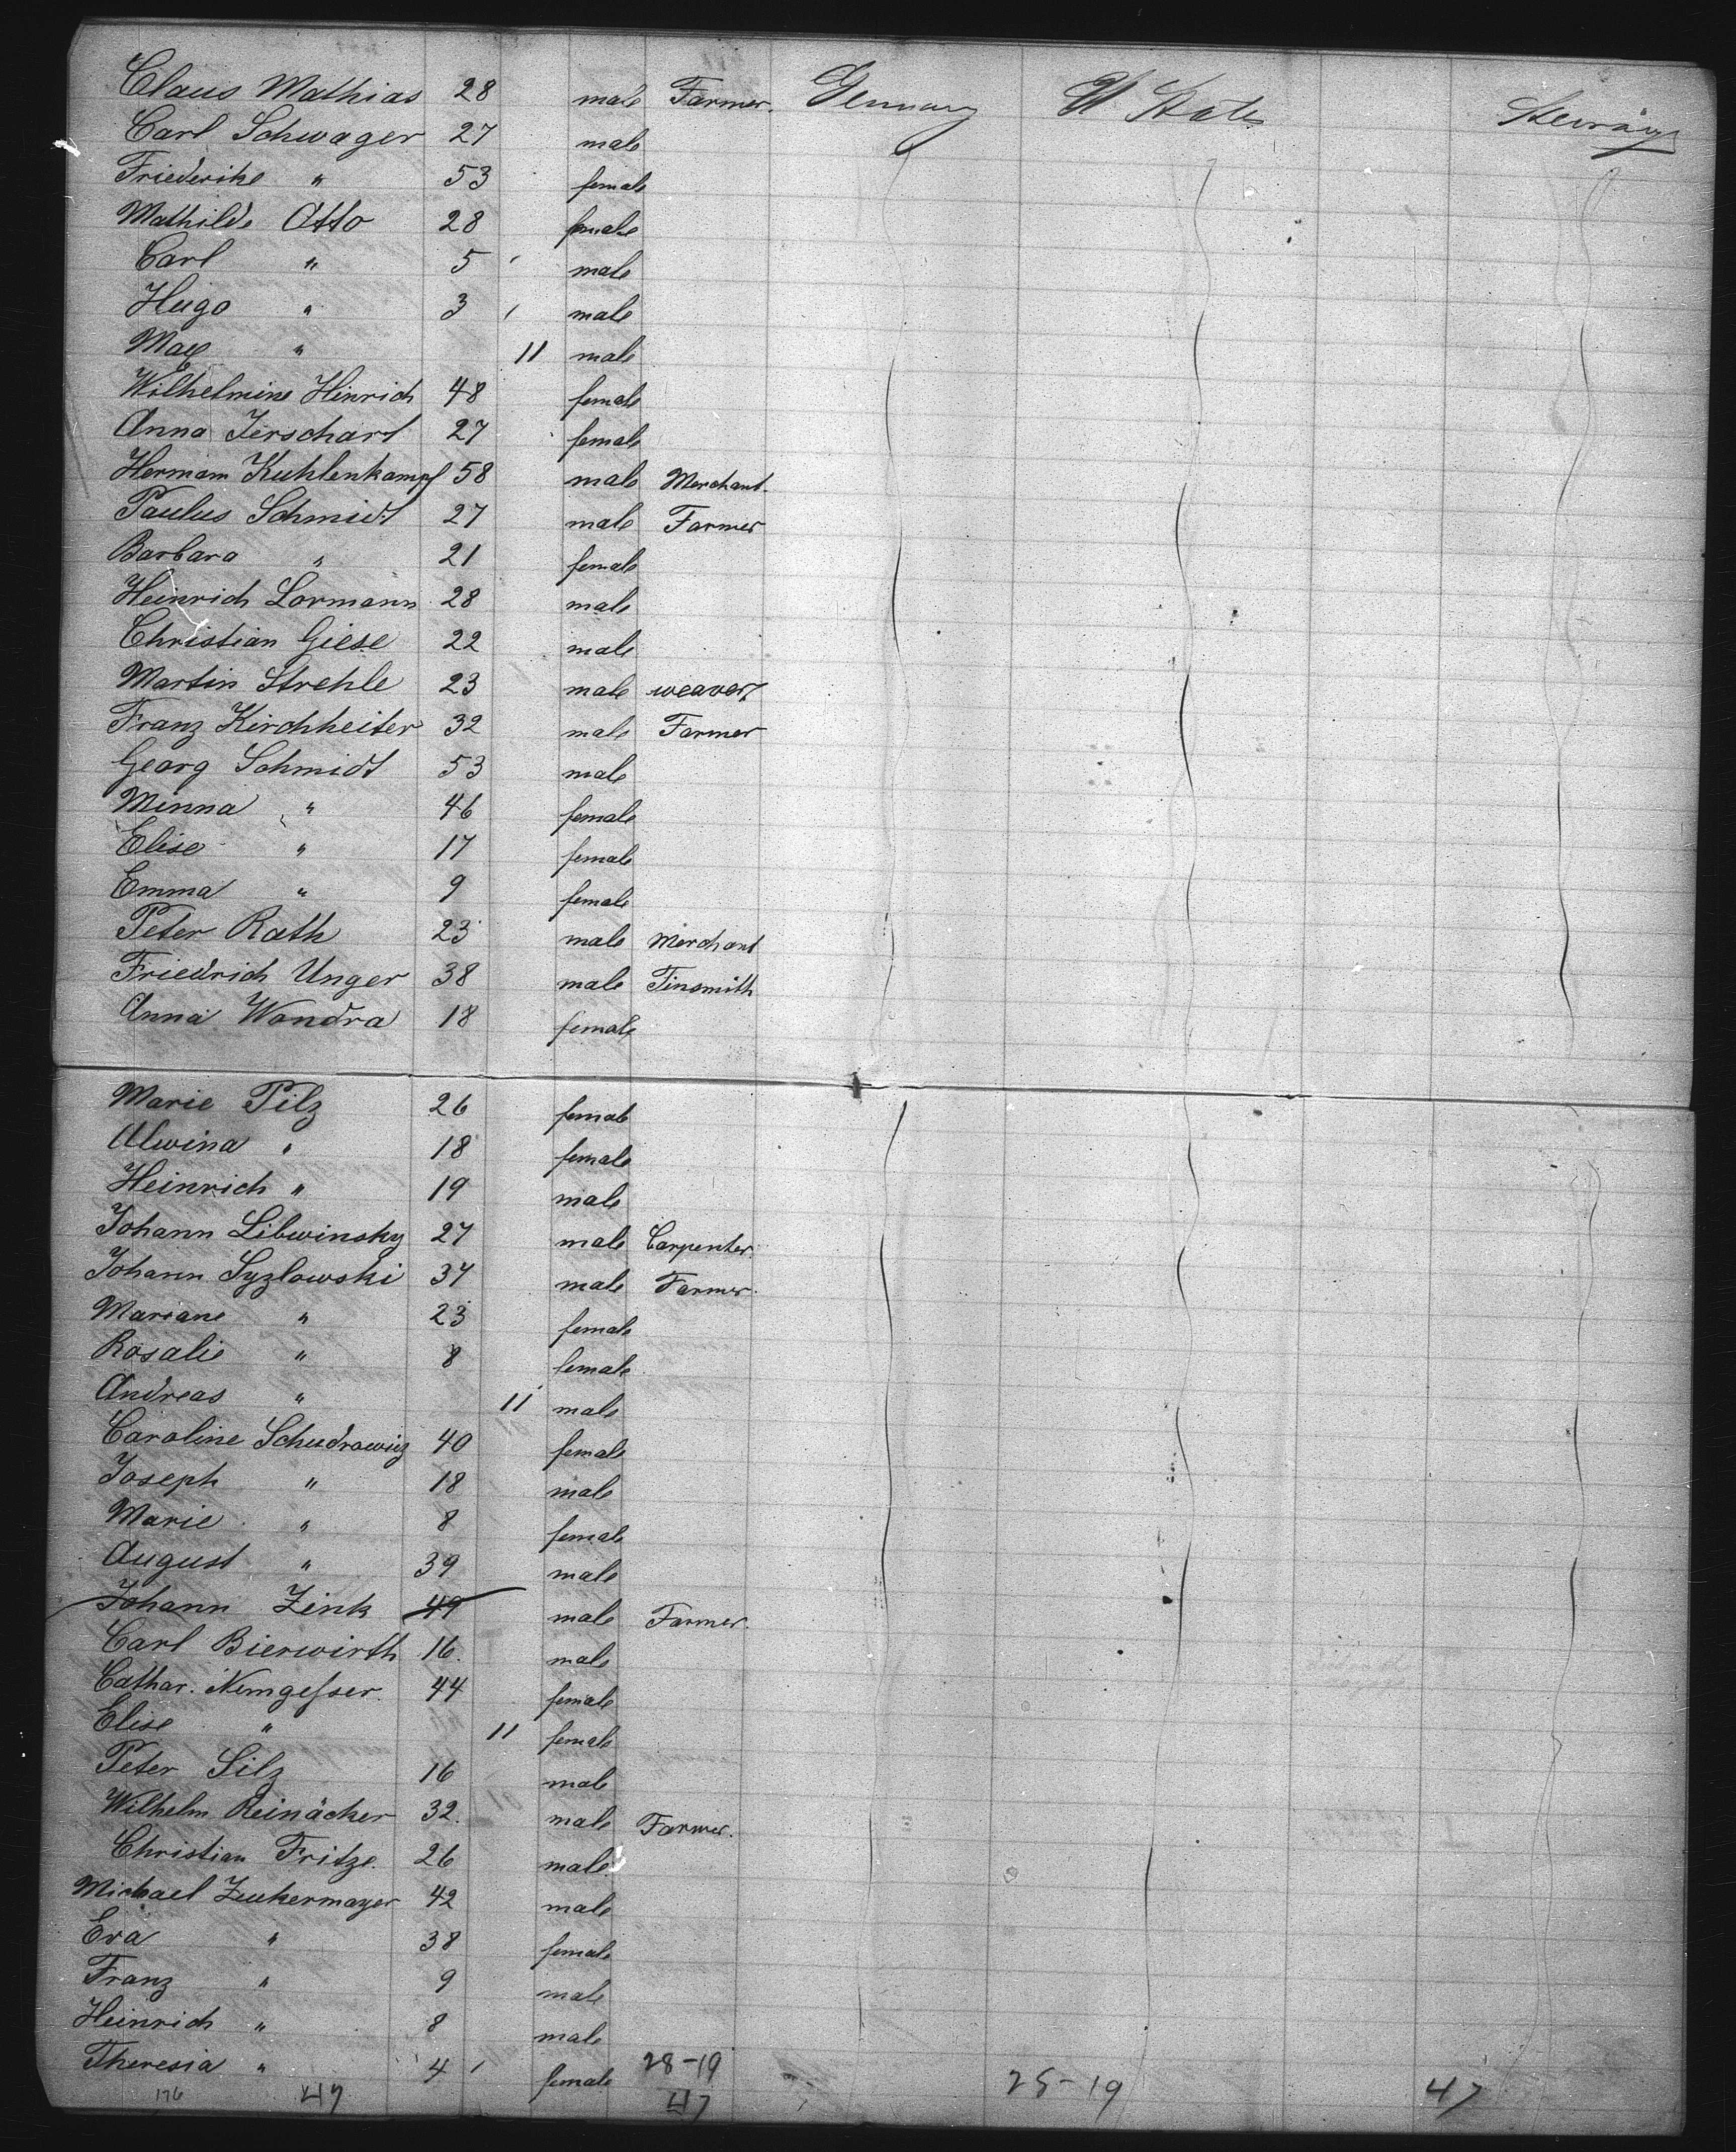 Claus Mathias 28 male Farmer. Germany U States Steerage
Carl Schwager 27 male
Friederike " 53 female
Mathilde Otto 28 female
Carl " 5 male
Hugo " 3 male
Max " 11 male
Wilhelmine Hinrich 48 female
Anna Jerschart 27 female
Hermann Kuhlenkampf 58 male Merchant.
Paulus Schmidt 27 male Farmer
Barbara " 21 female
Heinrich Lormann 28 male
Christian Giese 22 male
Martin Strehle 23 male weaver
Franz Kirchheiter 32 male Farmer
Georg Schmidt 53 male
Minna " 46 female
Elise " 17 female
Emma " 9 female
Peter Rath 23 male Merchant
Friedrich Unger 38 male Tinsmith
Anna Wondra 18 female
Marie Pilz 26 female
Alwina " 18 female
Heinrich " 19 male
Johann Libwinsky 27 male Carpenter.
Johann Syzlowski 37 male Farmer.
Mariane " 23 female
Rosalie " 8 female
Andreas " 11 male
Caroline Schudrowitz 40 female
Joseph " 18 male
Marie " 8 female
August " 39 male
Johann Zink 49 male Farmer.
Carl Bierwirth 16. male
Cathar. 44 female
Elise " 11 female
Peter Silz 16 male
Wilhelm Reinäcker 32. male Farmer.
Christian Fritze. 26 male
Michael Zuckermayer 42 male
Eva " 38 female
Franz " 9 male
Heinrich " 8 male
Theresia " 4 female 28-19 28-19 47
176 47 47